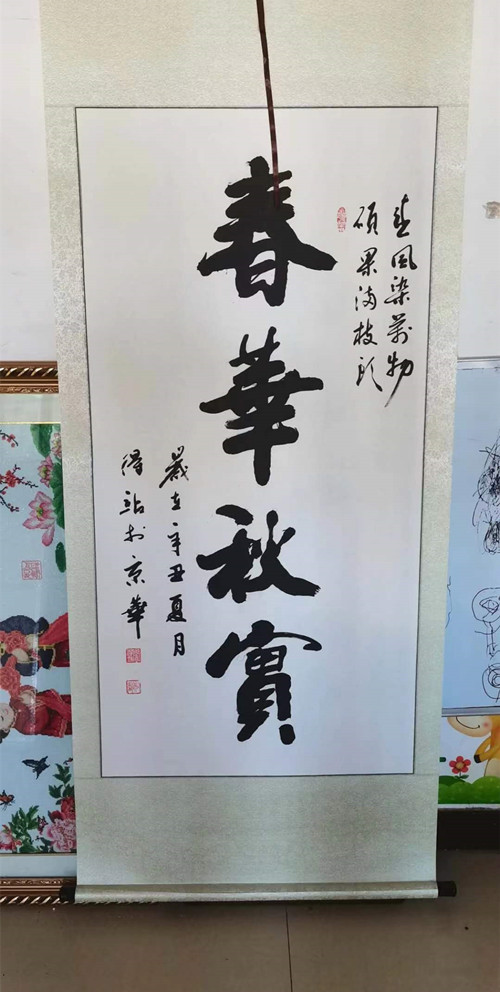 春風染萬物
碩果滿枝頭
春華秋實
歲在辛丑夏月
得〓於京華